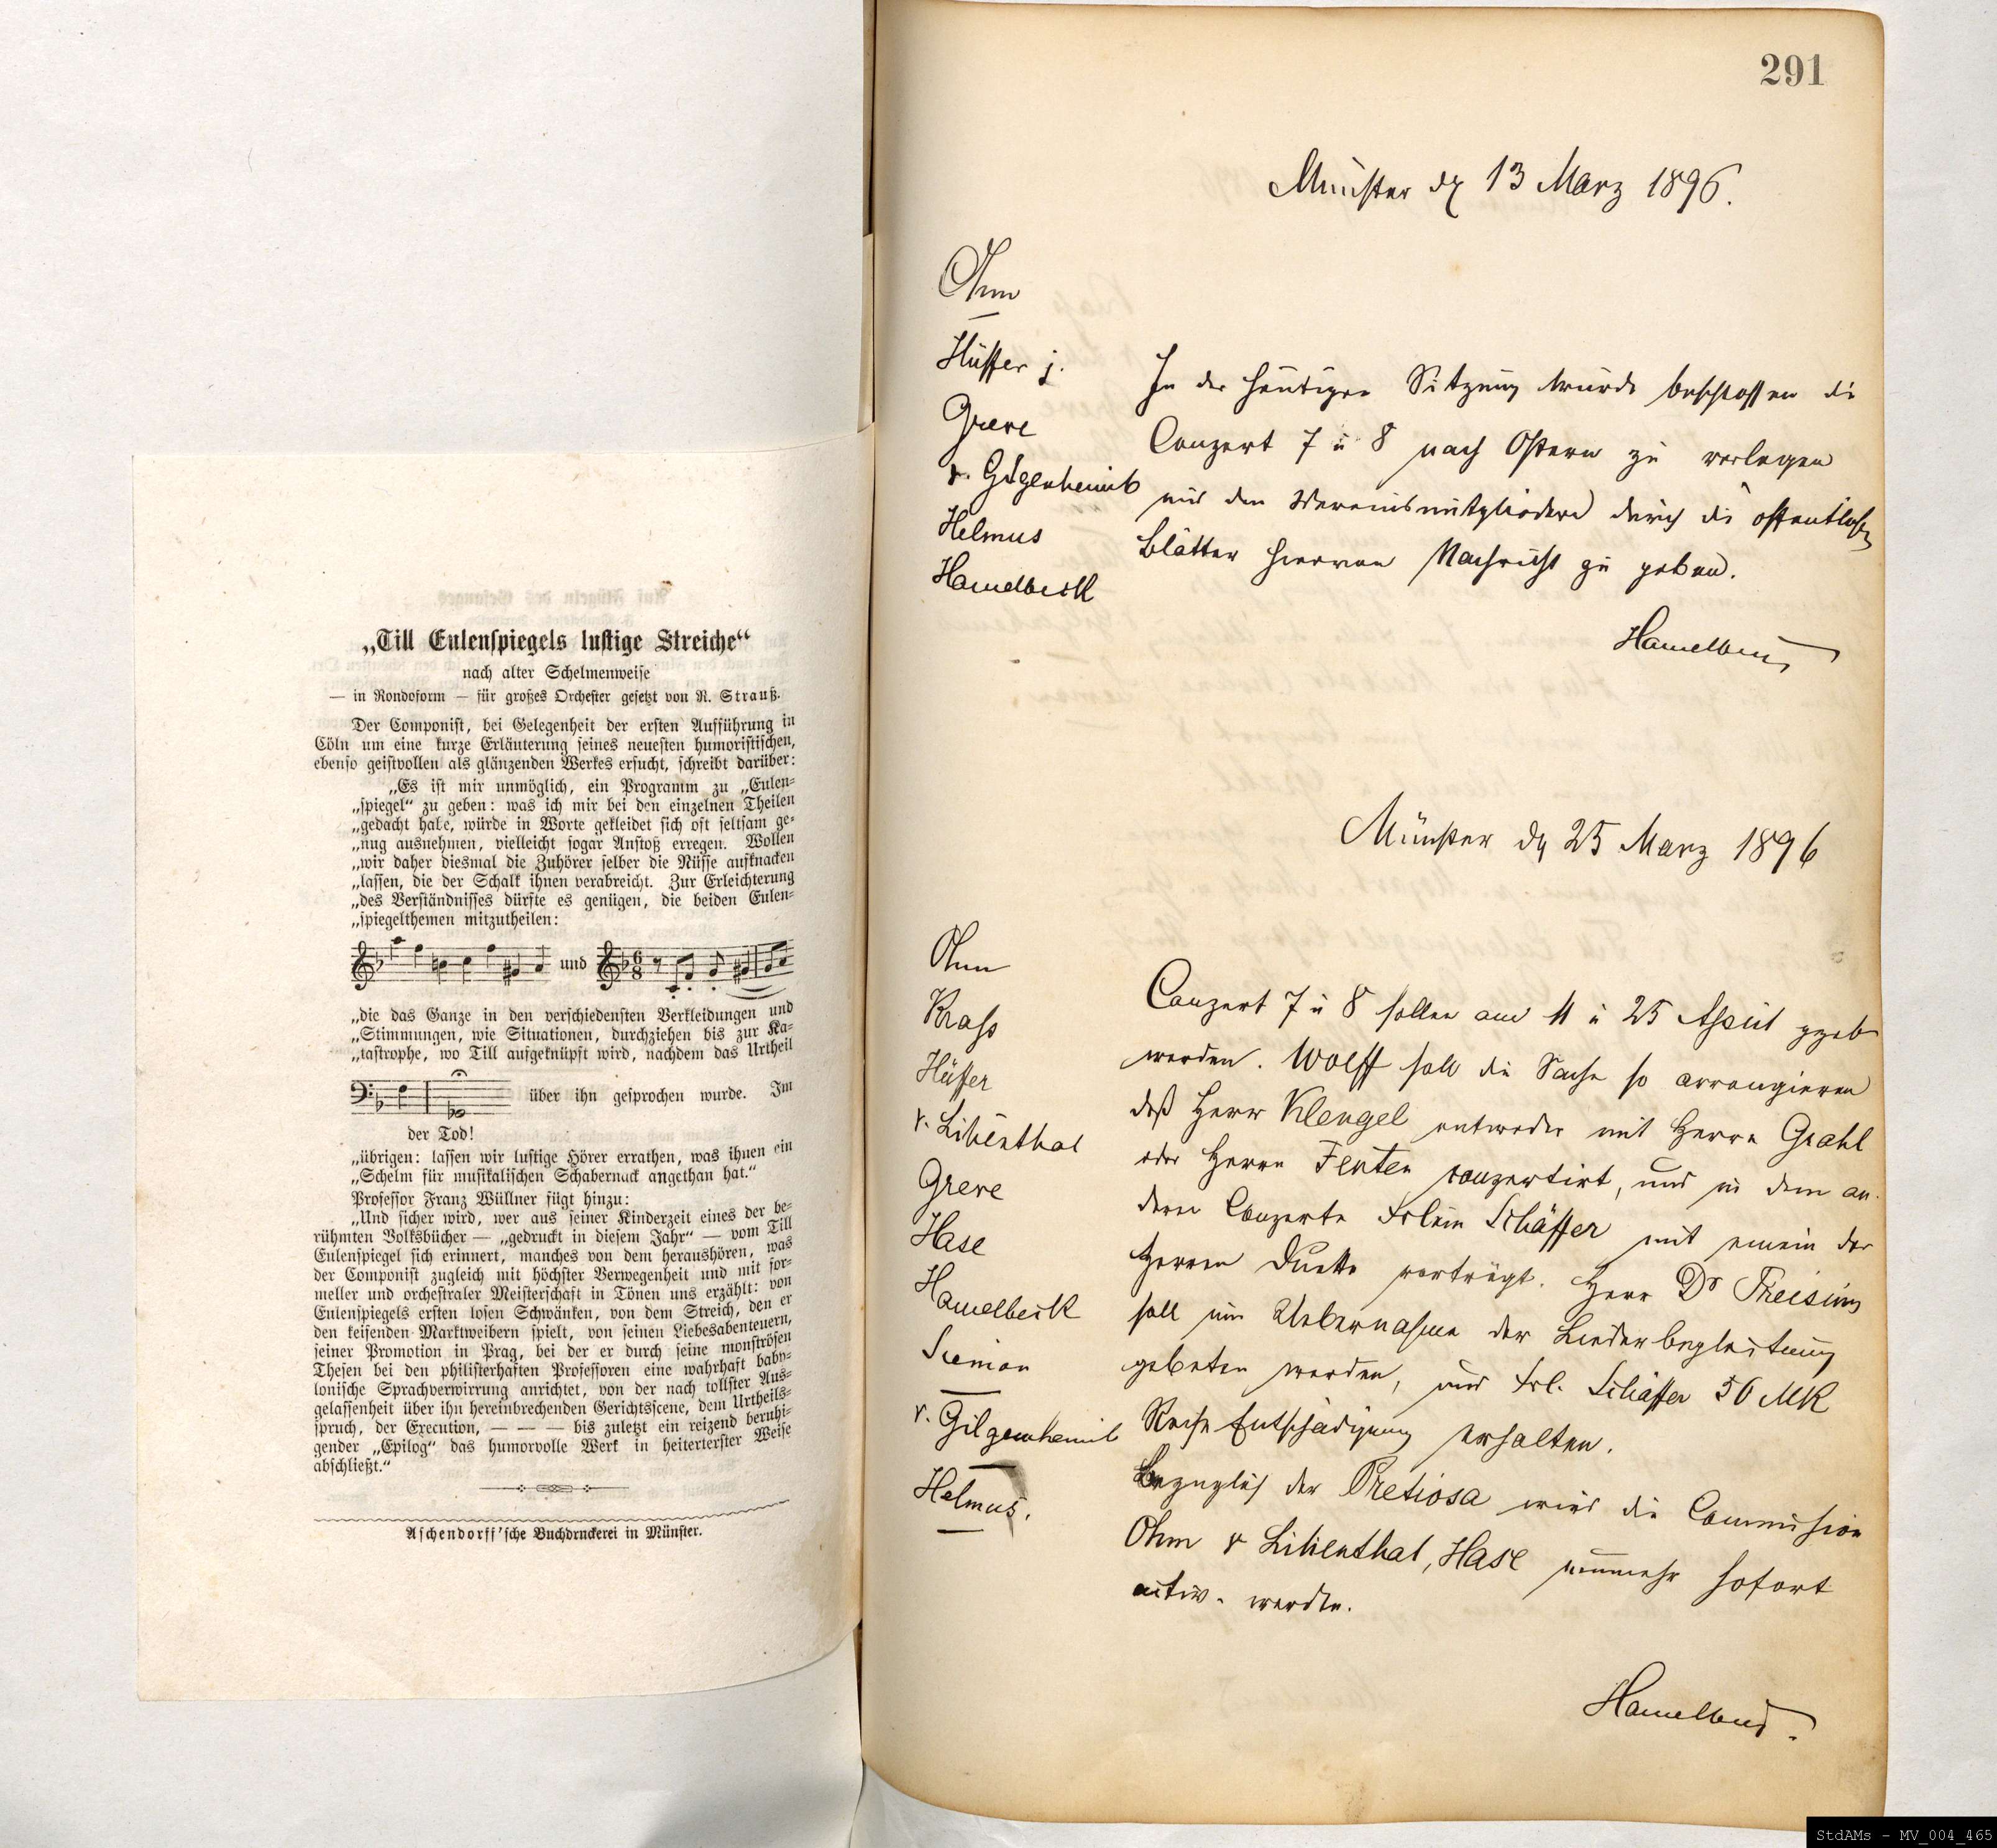 „Till Eulenſpiegels luſtige Streiche“
nach alter Schelmenweiſe
— in Rondoform — für großes Orcheſter geſetzt von R. Strauß.
Der Componiſt, bei Gelegenheit der erſten Aufführung in
Cöln um eine kurze Erläuterung ſeines neueſten humoriſtiſchen,
ebenſo geiſtvollen als glänzenden Werkes erſucht, ſchreibt darüber:
„Es iſt mir unmöglich, ein Programm zu „Eulen-
„ſpiegel“ zu geben: was ich mir bei den einzelnen Theilen
„gedacht habe, würde in Worte gekleidet ſich oft ſeltſam ge-
„nug ausnehmen, vielleicht ſogar Anſtoß erregen. Wollen
„wir daher diesmal die Zuhörer ſelber die Nüſſe aufknacken
„laſſen, die der Schalk ihnen verabreicht. Zur Erleichterung
„des Verſtändniſſes dürfte es genügen, die beiden Eulen-
„ſpiegelthemen mitzutheilen:
und
„die das Ganze in den verſchiedenſten Verkleidungen und
„Stimmungen, wie Situationen, durchziehen bis zur Ka-
„taſtrophe, wo Till aufgeknüpft wird, nachdem das Urtheil
über ihn geſprochen wurde. Im
der Tod!
„übrigen: laſſen wir luſtige Hörer errathen, was ihnen ein
„Schelm für muſikaliſchen Schabernack angethan hat.“
Profeſſor Franz Wüllner fügt hinzu:
„Und ſicher wird, wer aus ſeiner Kinderzeit eines der be-
rühmten Volksbücher — „gedruckt in dieſem Jahr“ — vom Till
Eulenſpiegel ſich erinnert, manches von dem heraushören, was
der Componiſt zugleich mit höchſter Verwegenheit und mit for-
meller und orcheſtraler Meiſterſchaft in Tönen uns erzählt: von
Eulenſpiegels erſten loſen Schwänken, von dem Streich, den er
den keifenden Marktweibern ſpielt, von ſeinen Liebesabenteuern,
ſeiner Promotion in Prag, bei der er durch ſeine monſtröſen
Theſen bei den philiſterhaften Profeſſoren eine wahrhaft baby-
loniſche Sprachverwirrung anrichtet, von der nach tollſter Aus-
gelaſſenheit über ihn hereinbrechenden Gerichtsſcene, dem Urtheils-
ſpruch, der Execution, — — — bis zuletzt ein reizend beruhi-
gender „Epilog“ das humorvolle Werk in heiterſter Weiſe
abſchließt.“
Aſchendorff'ſche Buchdruckerei in Münſter.
291
Münster d 13 Marz 1896.
Ohm
Hüffer j.
Greve
v. Gilgenheimb
Helmus
Hamelbeck
In der heutigen Sitzung wurde beschlossen die
Conzert 7 u 8 nach Ostern zu verlegen
und den Vereinsmitgliedern durch die öffentlichen
Blätter hiervon Nachricht zu geben.
Hamelbeck
Münster d 25 Marz 1896
Ohm
Krass
Hüffer
v. Lilienthal
Greve
Hase
Hamelbeck
Siemon
v. Gilgenheimb
Helmus.
Conzert 7 u 8 sollen am 11 u 25 April gegeb
werden. Wolff soll die Sache so arrangieren
daß Herr Klengel entweder mit Herrn Grahl
oder Herrn Fenten conzertirt, und in dem an-
deren Conzerte Frlein Schäffer mit einem der
Herren Duette vorträgt. Herr Dr Preising
soll um Uebernahme der Liederbegleitung
gebeten werden, und Frl. Schäffer 50 MK
Reise Entschädigung erhalten.
Bezuglich der Pretiosa wird die Commission
Ohm v Lilienthal, Hase nunmehr sofort
activ. werden.
Hamelbeck.
StdAMs - MV_004_465